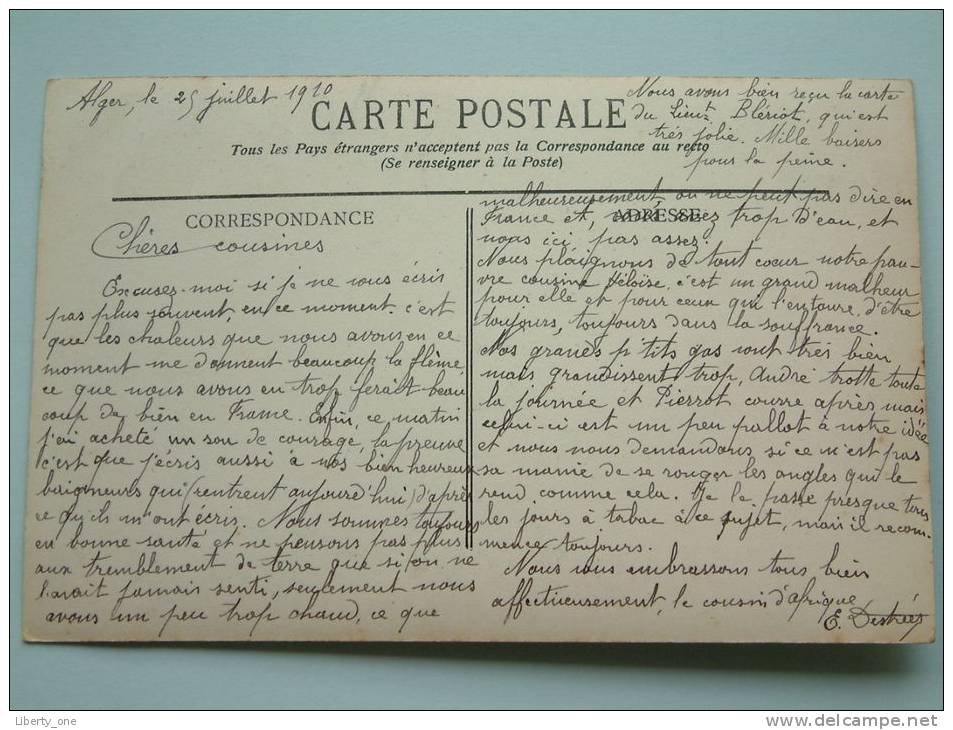 Alger, le 25 juillet 1910
CARTE POSTALE
Tous les Pays étrangers n'acceptent pas la Correspondance au recto
(Se renseigner à la Poste)
Nous avons bien reçu la carte
du Lieut Blériot, qui est
très jolie. Mille baisers
pour la peine.
CORRESPONDANCE
Chères cousines
Excusez-moi si je ne vous écris
pas plus souvent, en ce moment. c'est
que les chaleurs que nous avons en ce
moment me donnent beaucoup la flême,
ce que nous avons en trop ferait beau
coup de bien en France. Enfin, ce matin
j'ai acheté un sou de courage, la preuve
c'est que j'écris aussi à nos bien heureux
baigneurs qui (rentrent aujourd'hui) d'après
ce qu'ils m'ont écris. Nous sommes toujours
en bonne santé et ne pensons pas plus
aux tremblement de terre que si on ne
l'avait jamais senti, seulement nous
avons un peu trop chaud, ce que
ADRESSE
malheureusement on ne peut pas dire en
France et, vous avez trop d'eau, et
nous ici, pas assez.
Nous plaignons de tout coeur notre pau-
vre cousine Héloïse, c'est un grand malheur
pour elle et pour ceux qui l'entoure, d'être
toujours, toujours dans la souffrance.
Nos grands p'tits gas vont très bien
mais grandissent trop, André trotte toute
la journée et Pierrot courre après mais
celui-ci est un peu pallot à notre idée
et nous nous demandons si ce n'est pas
sa manie de se ronger les ongles qui le
rend comme cela. Je le passe presque tous
les jours à tabac à ce sujet, mais il recom-
mence toujours.
Nous vous embrassons tous bien
affectueusement, le cousin d'afrique
E.
Liberty_one
www.delcampe.net